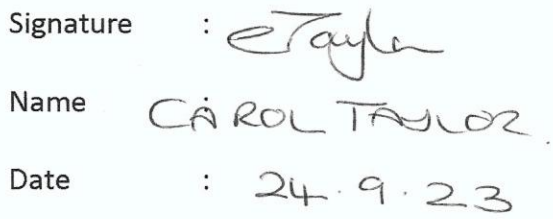 Signature : CTaylor
Name : CAROL TAYLOR.
Date : 24.9.23